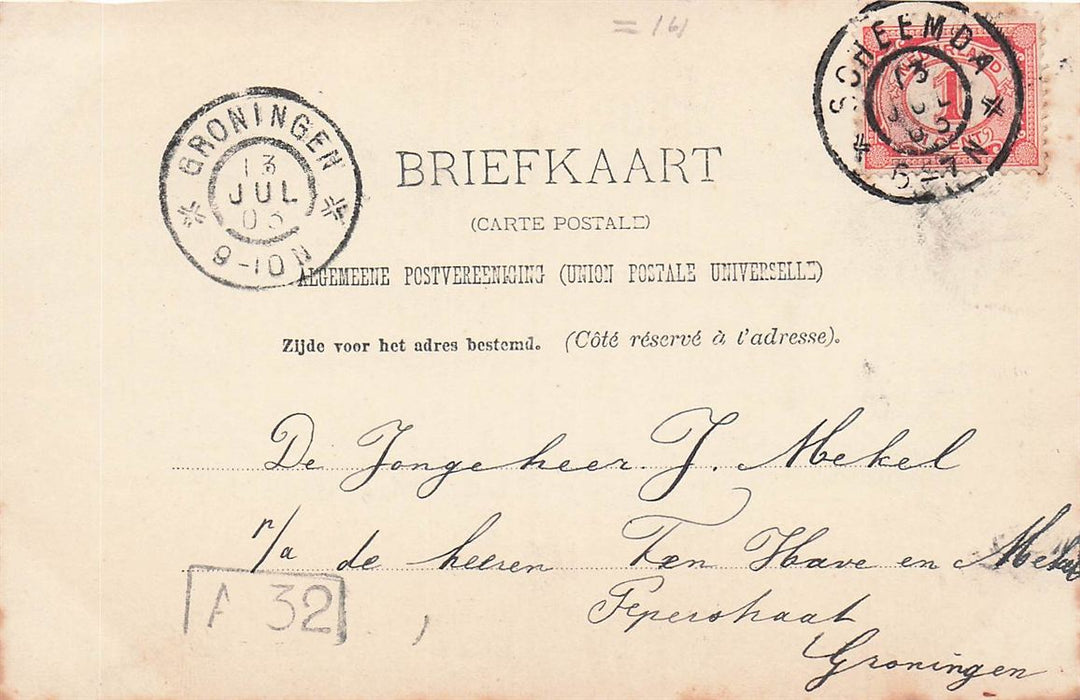 = 161
SCHEEMDA
13
5-7N
NEDERLAND
1
CENT
GRONINGEN
13
JUL
03
9-10N
BRIEFKAART
(CARTE POSTALE)
ALGEMEENE POSTVEREENIGING (UNION POSTALE UNIVERSELLE)
Zijde voor het adres bestemd. (Côté réservé à l'adresse).
De Jongeheer J. Mekel
p/a de heeren Ten Have en Mekel
Peperstraat
Groningen
A 32